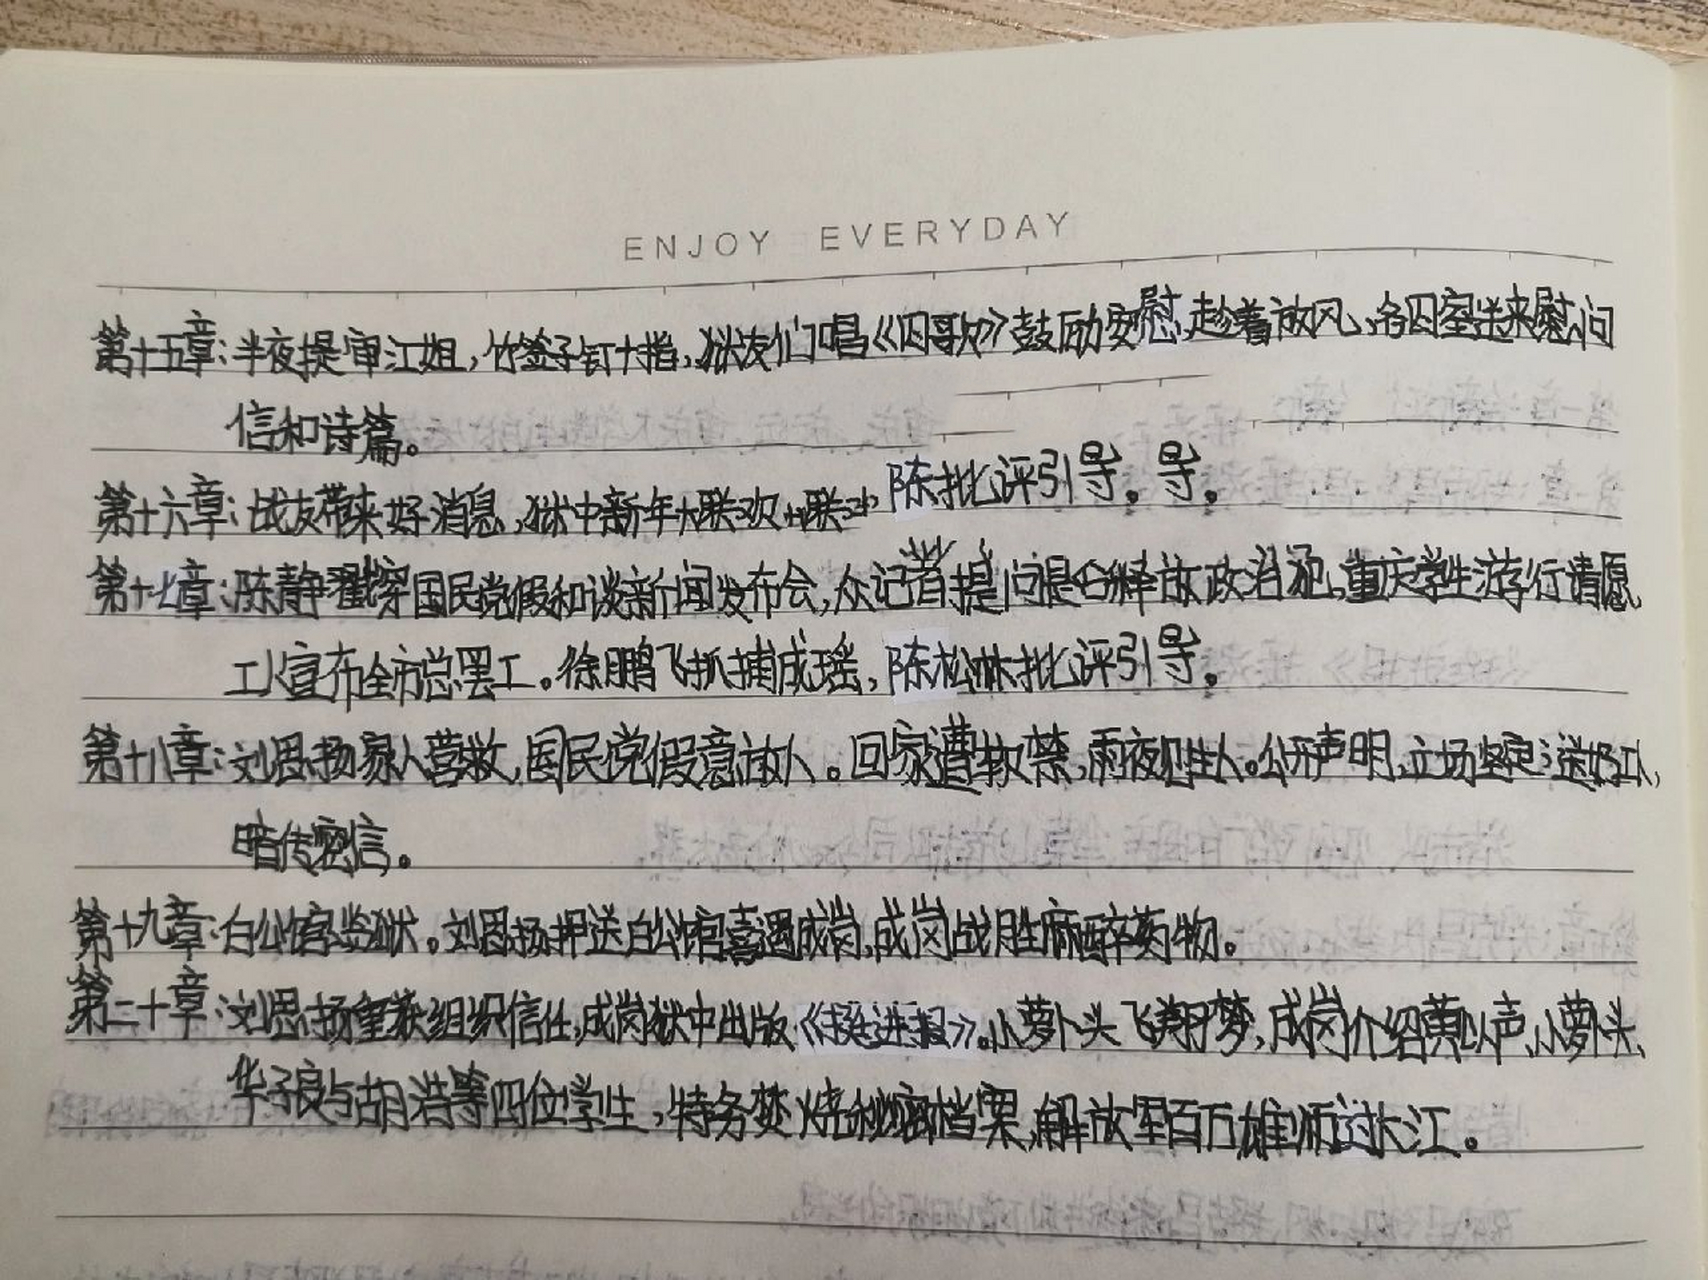 ENJOY EVERYDAY
第十五章:半夜提审江姐,竹签子钉十指,狱友们唱《囚歌》鼓励安慰,趁着放风,各囚室送来慰问
信和诗篇。
第十六章:战友带来好消息,狱中新年大联欢 联欢 陈批评引导。导。
第十七章:陈静戳穿国民党假和谈新闻发布会,众记者提问提名释放政治犯,重庆学生游行请愿
工人宣布全市总罢工。徐鹏飞抓捕成瑶,陈松林批评引导。
第十八章:刘思扬家人营救,国民党假意放人。回家遭软禁,雨夜见生人。公开声明,立场坚定;送奶工人,
暗传密信。
第十九章:白公馆监狱。刘思扬押送白公馆喜遇成岗,成岗战胜麻醉药物。
第二十章:刘思扬重获组织信任,成岗狱中出版《挺进报》。小萝卜头飞翔梦,成岗介绍黄以声、小萝卜头、
华子良与胡浩等四位学生,特务焚烧秘密档案,解放军百万雄师过长江。